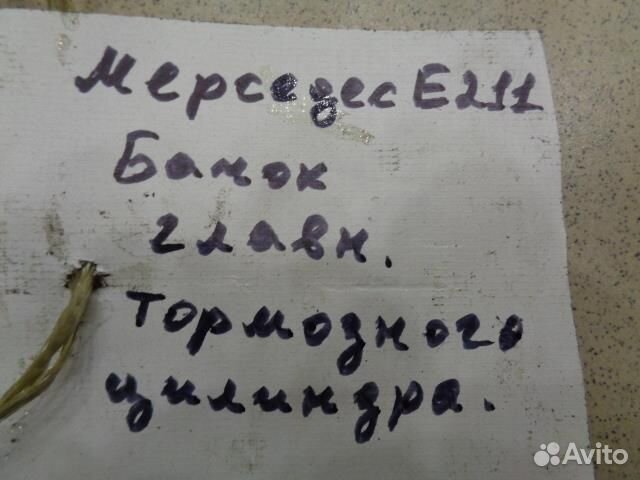 Мерседес Е211
Бачок
главн.
тормозного
цилиндра.
Avito